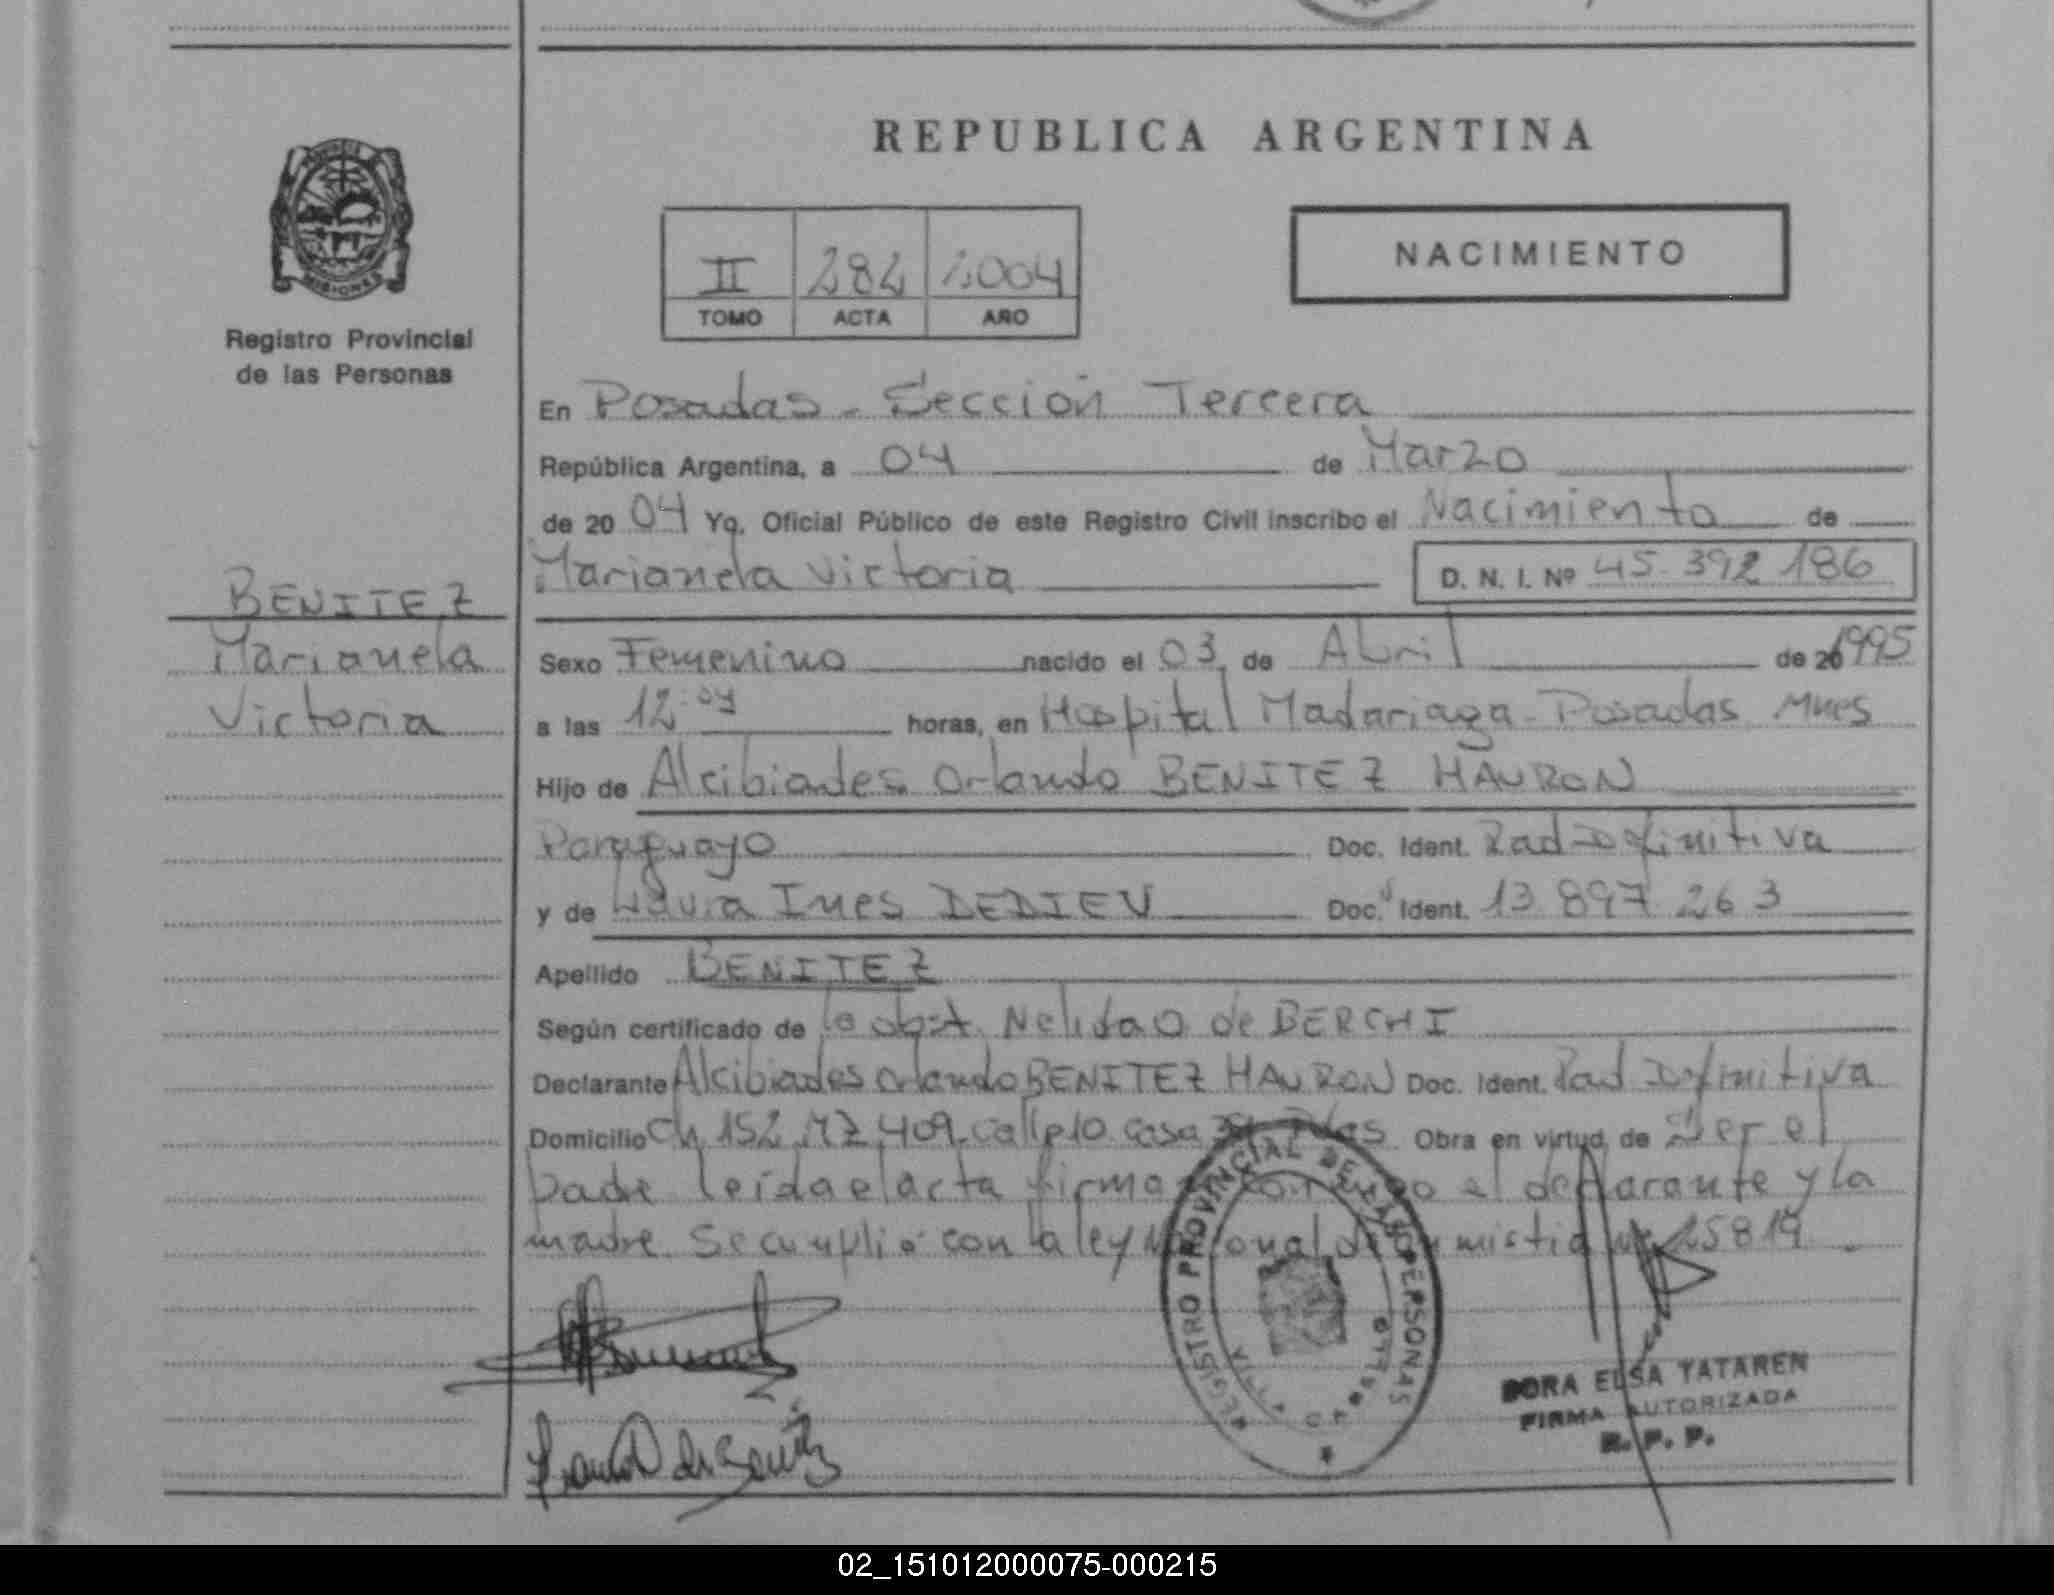 REPUBLICA ARGENTINA
II 282 2004
TOMO ACTA AÑO
NACIMIENTO
MISIONES
Registro Provincial
de las Personas
BENITEZ
Marianela
Victoria
En Posadas - Sección Tercera
República Argentina, a 04 de Marzo
de 20 04 Yo, Oficial Público de este Registro Civil inscribo el Nacimiento de
Marianela Victoria D. N. I. Nº 45.392 186
Sexo Femenino nacido el 03 de Abril de 20 1995
a las 12:04 horas, en Hospital Madariaga - Posadas Mnes
Hijo de Alcibiades Orlando BENITEZ HAURON
Paraguayo Doc. Ident. Rad Definitiva
y de Ines DEDIEU Doc. Ident. 13 897 263
Apellido BENITEZ
Según certificado de la obst. de BERCHI
Declarante Alcibiades Orlando BENITEZ HAURON Doc. Ident. Rad Definitiva
Domicilio Ch 152 MZ 409 calle 10 casa Obra en virtud de Ser el
padre leida el acta firma el declarante y la
madre. Se cumplió con la ley Nacional de Amnistia 25819
REGISTRO PROVINCIAL DE LAS PERSONAS
DORA ELSA YATAREN
FIRMA AUTORIZADA
R. P. P.
02_151012000075-000215